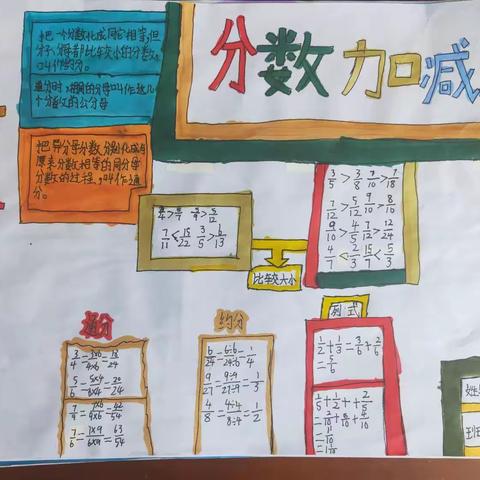 分数加减
把一个分数化成同它相等,但
分子、分母都比较小的分数,
叫作约分。
通分时,相同的分母叫作这几
个分数的公分母
把异分母分数分别化成与
原来分数相等的同分母
分数的过程,叫作通
分。
7/11<15/22 3/5>6/13
比较大小
3/5>3/8 7/10>7/18
7/12>5/12 9/10>8/10
9/10>4/5 7/12>12/24
4/7<2/3 15/7<5/3
通分
3/4=3×6/4×6=18/24
5/6=5×4/6×4=20/24
7/6=7×9/6×9=63/54
约分
6/24=6÷6/24÷6=1/4
9/27=9÷9/27÷9=1/3
4/8=4÷4/8÷4=1/2
列式
1/2+1/3=3/6+2/6
=5/6
1/5+1/2+2/5
=2/10+5/10+4/10
=11/10
=1 1/10
姓
班